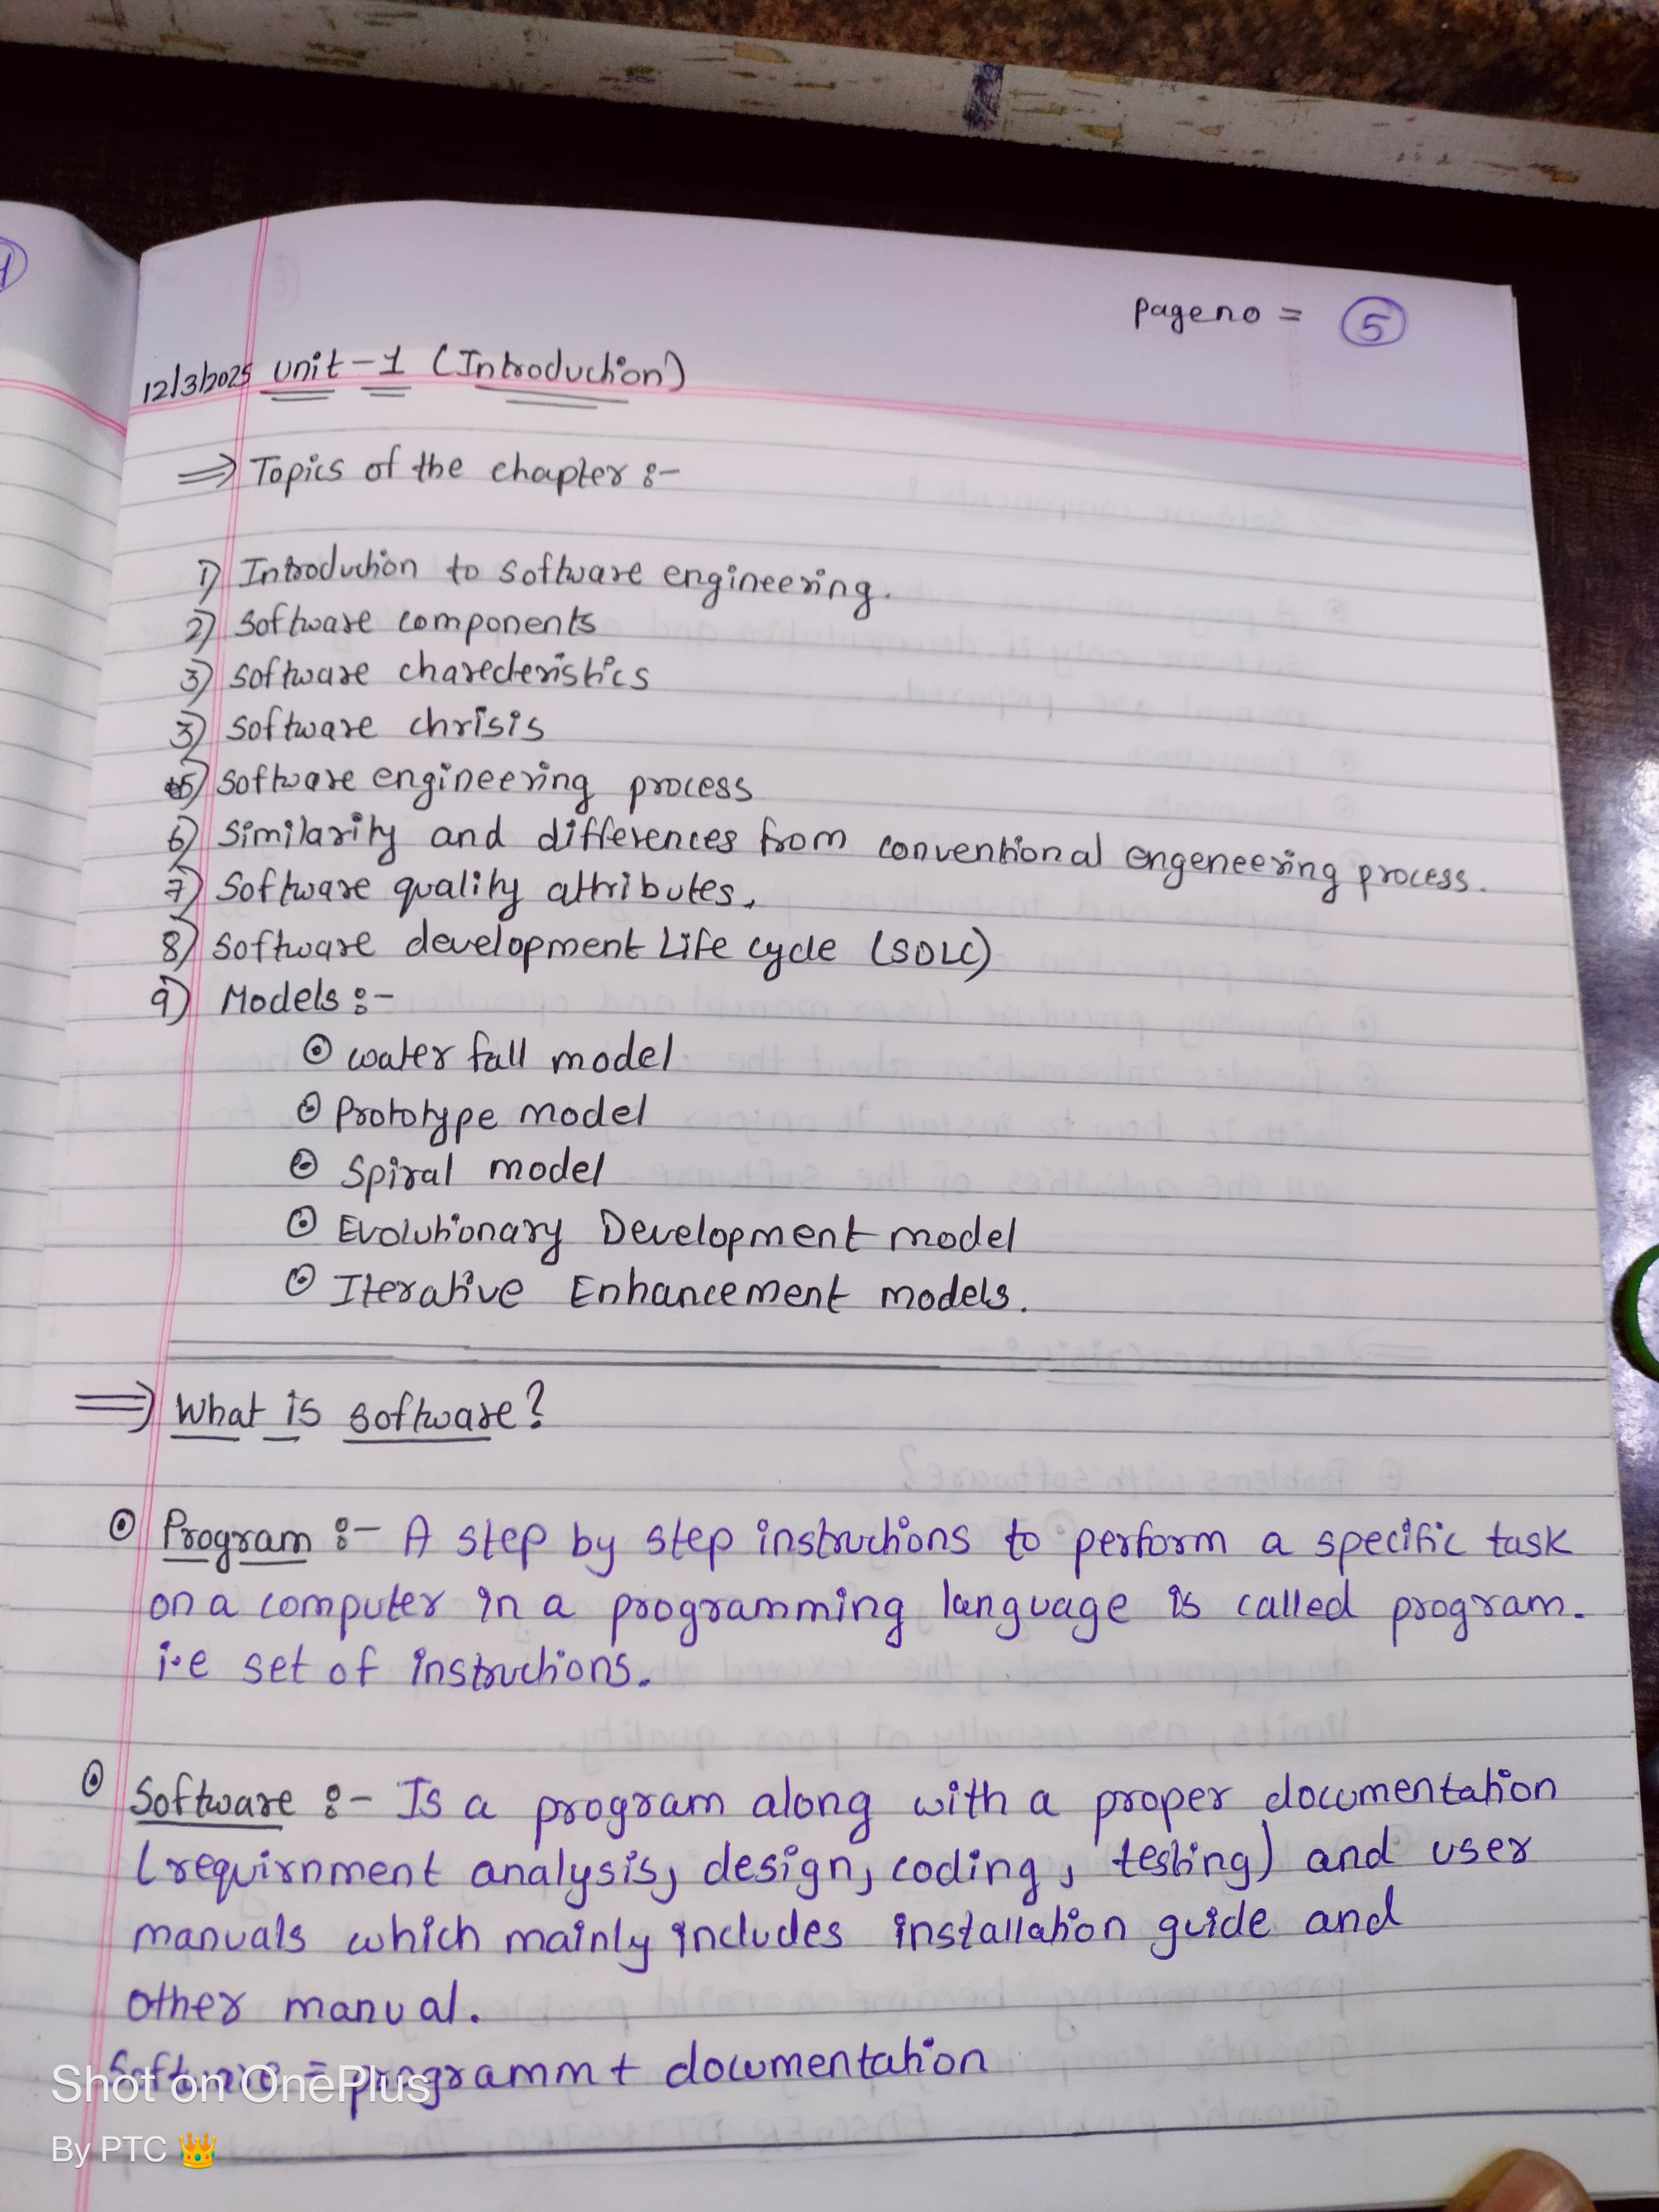 pageno = 5
12/3/2025 unit-1 (Introduction)
⇒ Topics of the chapter :-
1) Introduction to software engineering.
2) Software components
3) Software charecteristics
3) Software chrisis
5) Software engineering process
6) Similarity and differences from conventional engeneering process.
7) Software quality attributes.
8) Software development Life cycle (SDLC)
9) Models :-
⊙ water fall model
⊙ Prototype model
⊙ Spiral model
⊙ Evolutionary Development model
⊙ Iterative Enhancement models.
⇒ What is software?
⊙ Program :- A step by step instructions to perform a specific task
on a computer in a programming language is called program.
i.e set of instructions.
⊙ Software :- Is a program along with a proper documentation
(requirnment analysis, design, coding, testing) and user
manuals which mainly includes installation guide and
other manual.
Software = programm + documentation
Shot on OnePlus
By PTC 👑